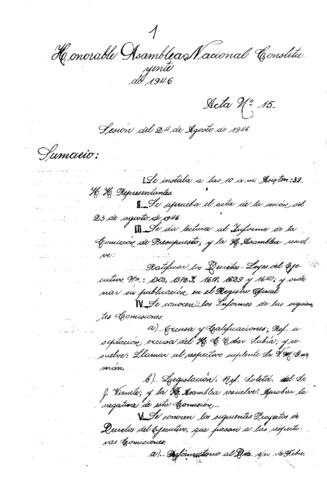 1
Honorable Asamblea Nacional Constitu
yente
de 1946
Acta Nº 15.
Sesión del 24 de Agosto de 1946
Sumario:
I._ Se instala a las 10 a.m. Asisten: 38.
H. H. Representantes.
II._ Se aprueba el acta de la sesión del
23 de agosto de 1946
III._ Se dio lectura al Informe de la
Comisión de Presupuesto, y la H. Asamblea resuel-
ve:
Ratificar los Decretos-Leyes del Eje-
cutivo Nos.: y orde
nar su publicación en el Registro Oficial
IV._ Se conocen los Informes de las siguien
tes Comisiones:
a)._ Excusa y Calificaciones; Ref. a
aceptación excusa del H. ; y re
suelve: Llamar al respectivo suplente
mán.
b)._ Legislación; Ref. Solctd. del Sr.
J. ; y la H. Asamblea resuelve: Aprobar la
negativa de esta Comisión._
V._ Se conocen los siguientes Proyectos de
Decretos del Ejecutivo, que pasan a las respecti
vas Comisiones:
a)._ Reformatorio al s/n de